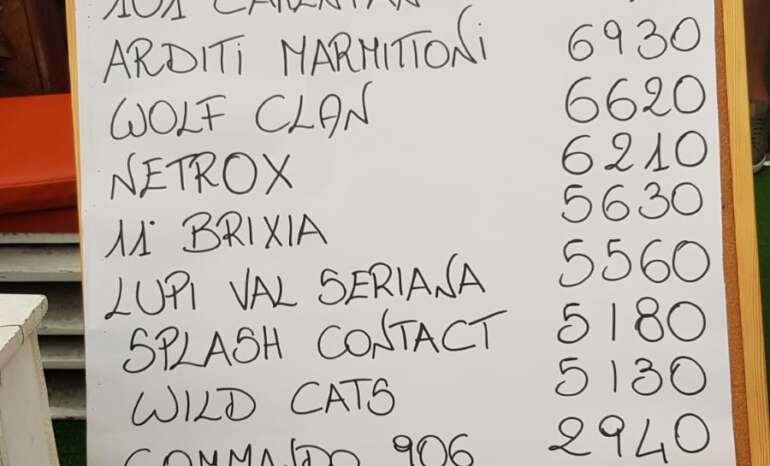 101 CARENTAN
ARDITI MARMITTONI 6930
WOLF CLAN 6620
NETROX 6210
11° BRIXIA 5630
LUPI VAL SERIANA 5560
SPLASH CONTACT 5180
WILD CATS 5130
COMMANDO 906 2940